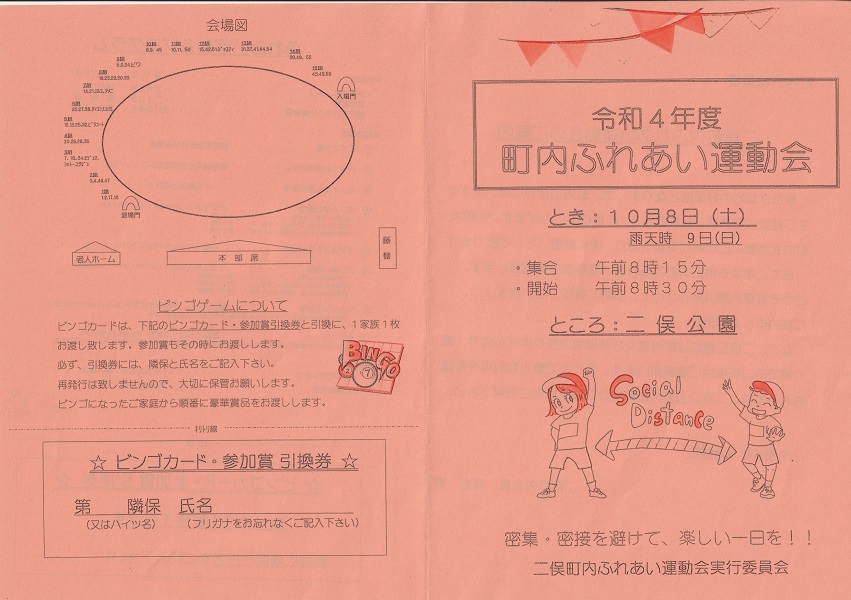 会場図
入場門
退場門
老人ホーム
本部席
藤棚
ビンゴゲームについて
ビンゴカードは、下記のビンゴカード・参加賞引換券と引換に、1家族1枚
お渡し致します。参加賞もその時にお渡しします。
必ず、引換券には、隣保と氏名をご記入下さい。
再発行は致しませんので、大切に保管お願いします。
ビンゴになったご家庭から順番に豪華賞品をお渡しします。
BINGO
キリトリ線
☆ ビンゴカード・参加賞 引換券 ☆
第　　隣保　氏名
(又はハイツ名)　(フリガナをお忘れなくご記入下さい)
令和4年度
町内ふれあい運動会
とき：10月8日（土）
雨天時　9日(日)
・集合　午前8時15分
・開始　午前8時30分
ところ：二俣公園
Social
Distance
密集・密接を避けて、楽しい一日を！！
二俣町内ふれあい運動会実行委員会